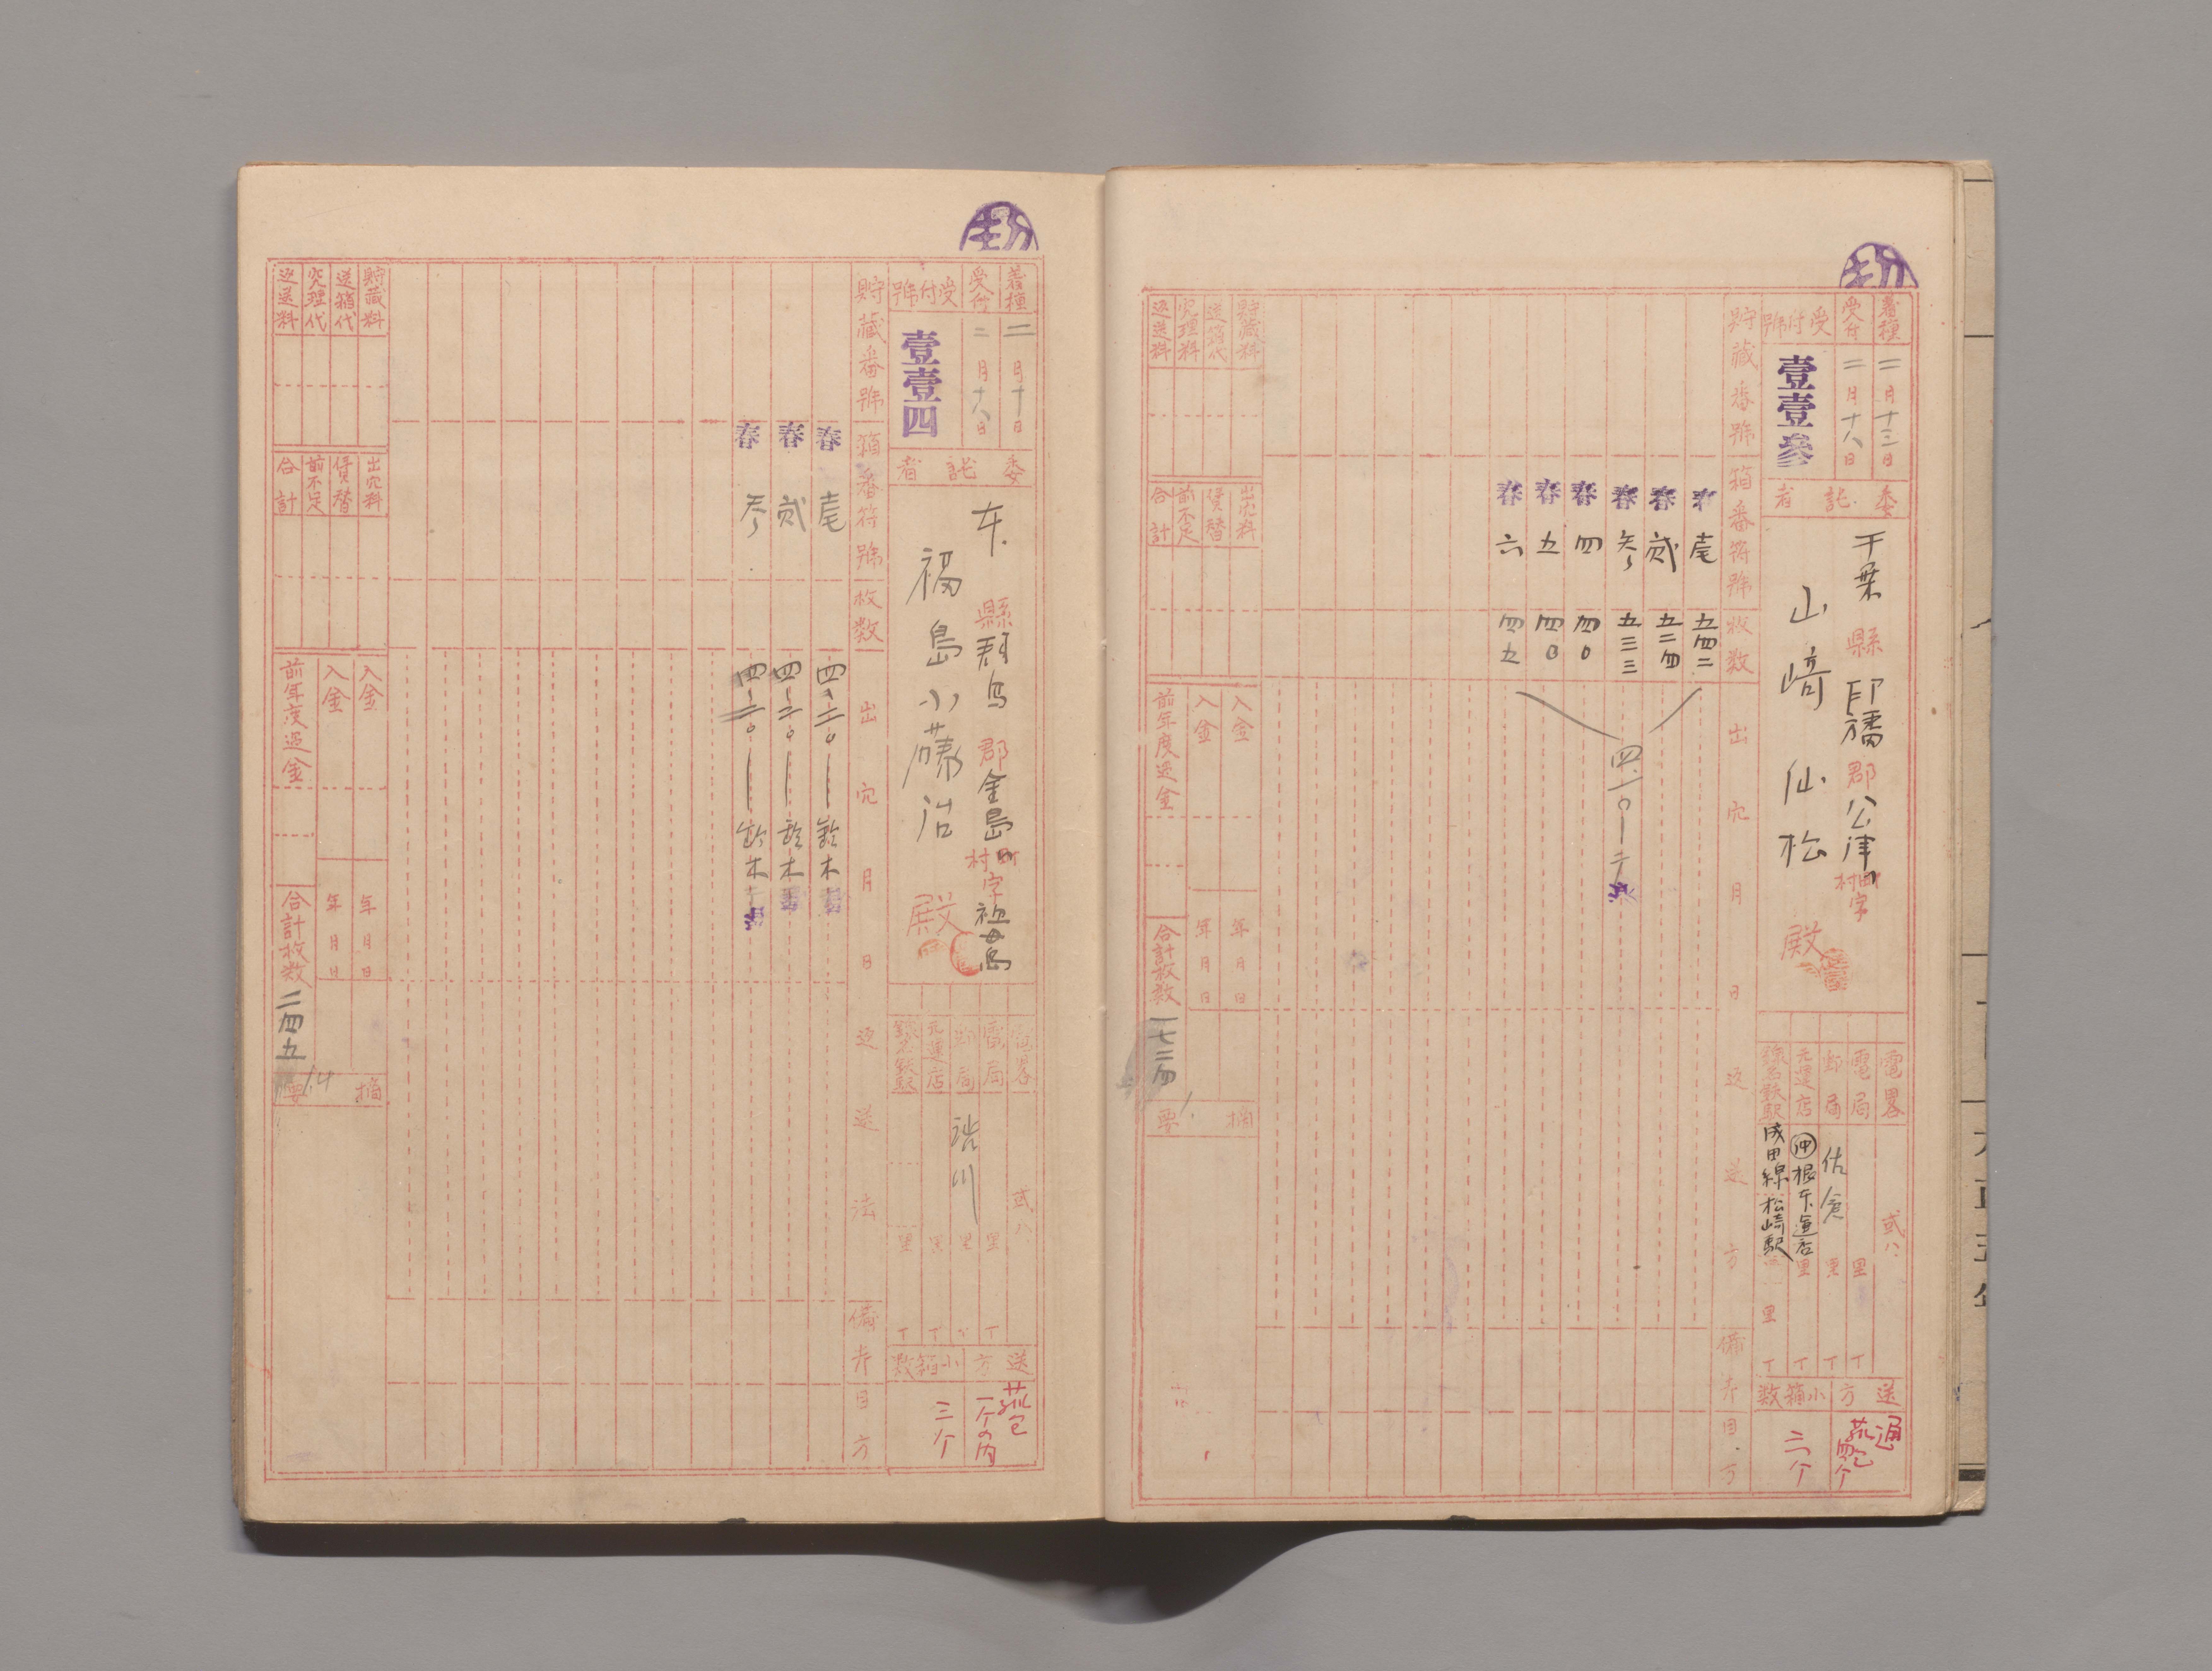 着種
二月十三日
受付
二月十八日
受付號
壹壹參
委託者
千葉縣印旛郡公津村町字
山﨑仙松殿
電畧
貳八
電局
里
丁
郵局
佐倉
里
丁
元運店
沖根本運店
里
丁
線名鉄駅
成田線松崎駅
里
丁
送方
通
小箱數
二个
貯藏番號
箱番符號
枚數
出穴月日
返送方
備考目方
春
壱
五四二
春
貳
五二四
春
参
五三三
春
四
四〇
春
五
四〇
春
六
四五
貯藏料
送箱代
究理料
返送料
出穴料
貸替
前不足
合計
入金
入金
前年度過金
年月日
年月日
合計枚数
一七二四
摘要
着種
二月十日
受付
二月十八日
受付號
壹壹四
委託者
縣群馬郡金島村町字祖母島
福島小藤治殿
電畧
貳八
電局
里
丁
郵局
渋川
里
元運店
里
丁
線名鉄駅
里
丁
送方
一个の内
小箱数
三个
貯藏番號
箱番符號
枚数
出穴月日
返送法
備考目方
春
壱
鈴木
春
貳
鈴木
春
参
鈴木
貯藏料
送箱代
究理代
返送料
出穴料
貸替
前不足
合計
入金
入金
前年度過金
年月日
年月日
合計枚数
二四五
摘要